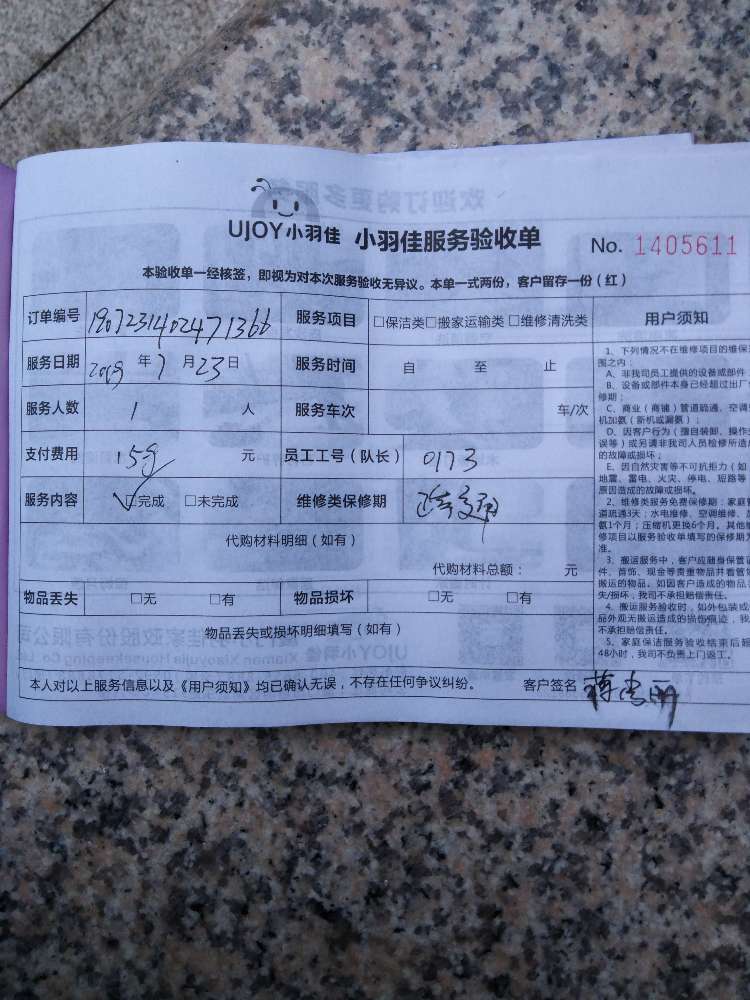 UJOY小羽佳 小羽佳服务验收单 No. 1405611
本验收单一经核签，即视为对本次服务验收无异议。本单一式两份，客户留存一份（红）
订单编号 1907231402471366 服务项目 □保洁类□搬家运输类□维修清洗类 用户须知
服务日期 2019 年 7 月 23 日 服务时间 自 至 止
服务人数 1 人 服务车次 车/次
支付费用 159 元 员工工号（队长） 0173
服务内容 □完成 □未完成 维修类保修期
代购材料明细（如有）
代购材料总额： 元
物品丢失 □无 □有 物品损坏 □无 □有
物品丢失或损坏明细填写（如有）
本人对以上服务信息以及《用户须知》均已确认无误，不存在任何争议纠纷。 客户签名
1、下列情况不在维修项目的维保
围之内：
A、非我司员工提供的设备或部件
B、设备或部件本身已经超过出厂
修期；
C、商业（商铺）管道疏通、空调
机加氨（新机或漏氨）；
D、因客户行为（擅自装卸、操作
误等）或另请非我司人员检修所造
的故障或损坏；
E、因自然灾害等不可抗拒力（如
地震、雷电、火灾、停电、短路等
原因造成的故障或损坏。
2、维修类服务免费保修期：家庭
道疏通3天；水电维修、空调维修、
氨1个月；压缩机更换6个月。其他
修项目以服务验收单填写的保修期
准。
3、搬运服务中，客户应随身保管
件、首饰、现金等贵重物品并看管
搬运的物品。如因客户造成的物品
失/损坏，我司不承担赔偿责任。
4、搬运服务验收时，如外包装或
品外观无搬运造成的损伤痕迹，我
不承担赔偿责任。
5、家庭保洁服务验收结束后超
48小时，我司不负责上门返工。